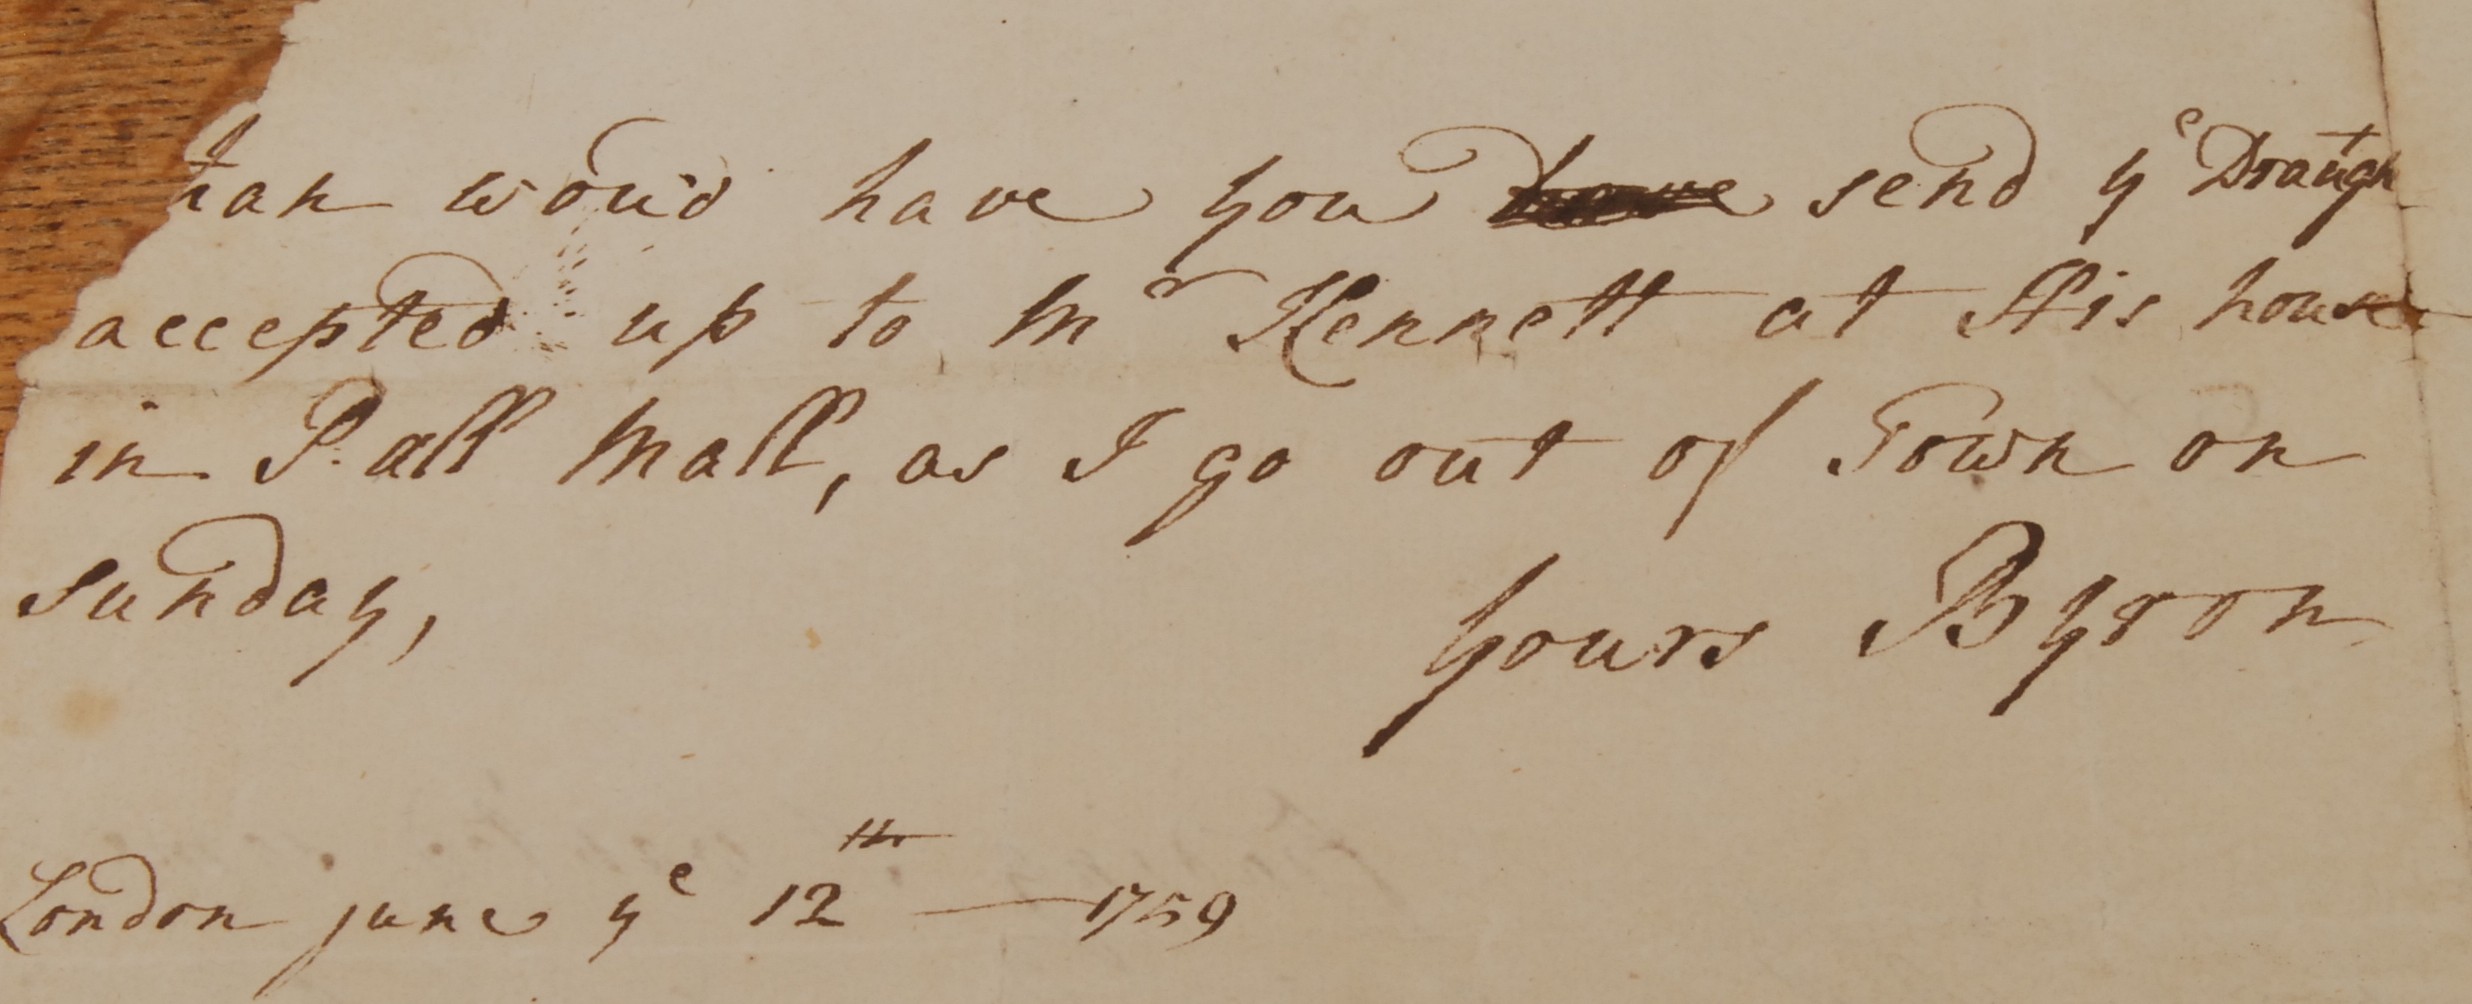 wou'd have you have send yᵉ Draugh
accepted up to Mʳ Kennett at His house
in Pall Mall, as I go out of Town on
sunday,
yours Byron
London june yᵉ 12ᵗʰ — 1759